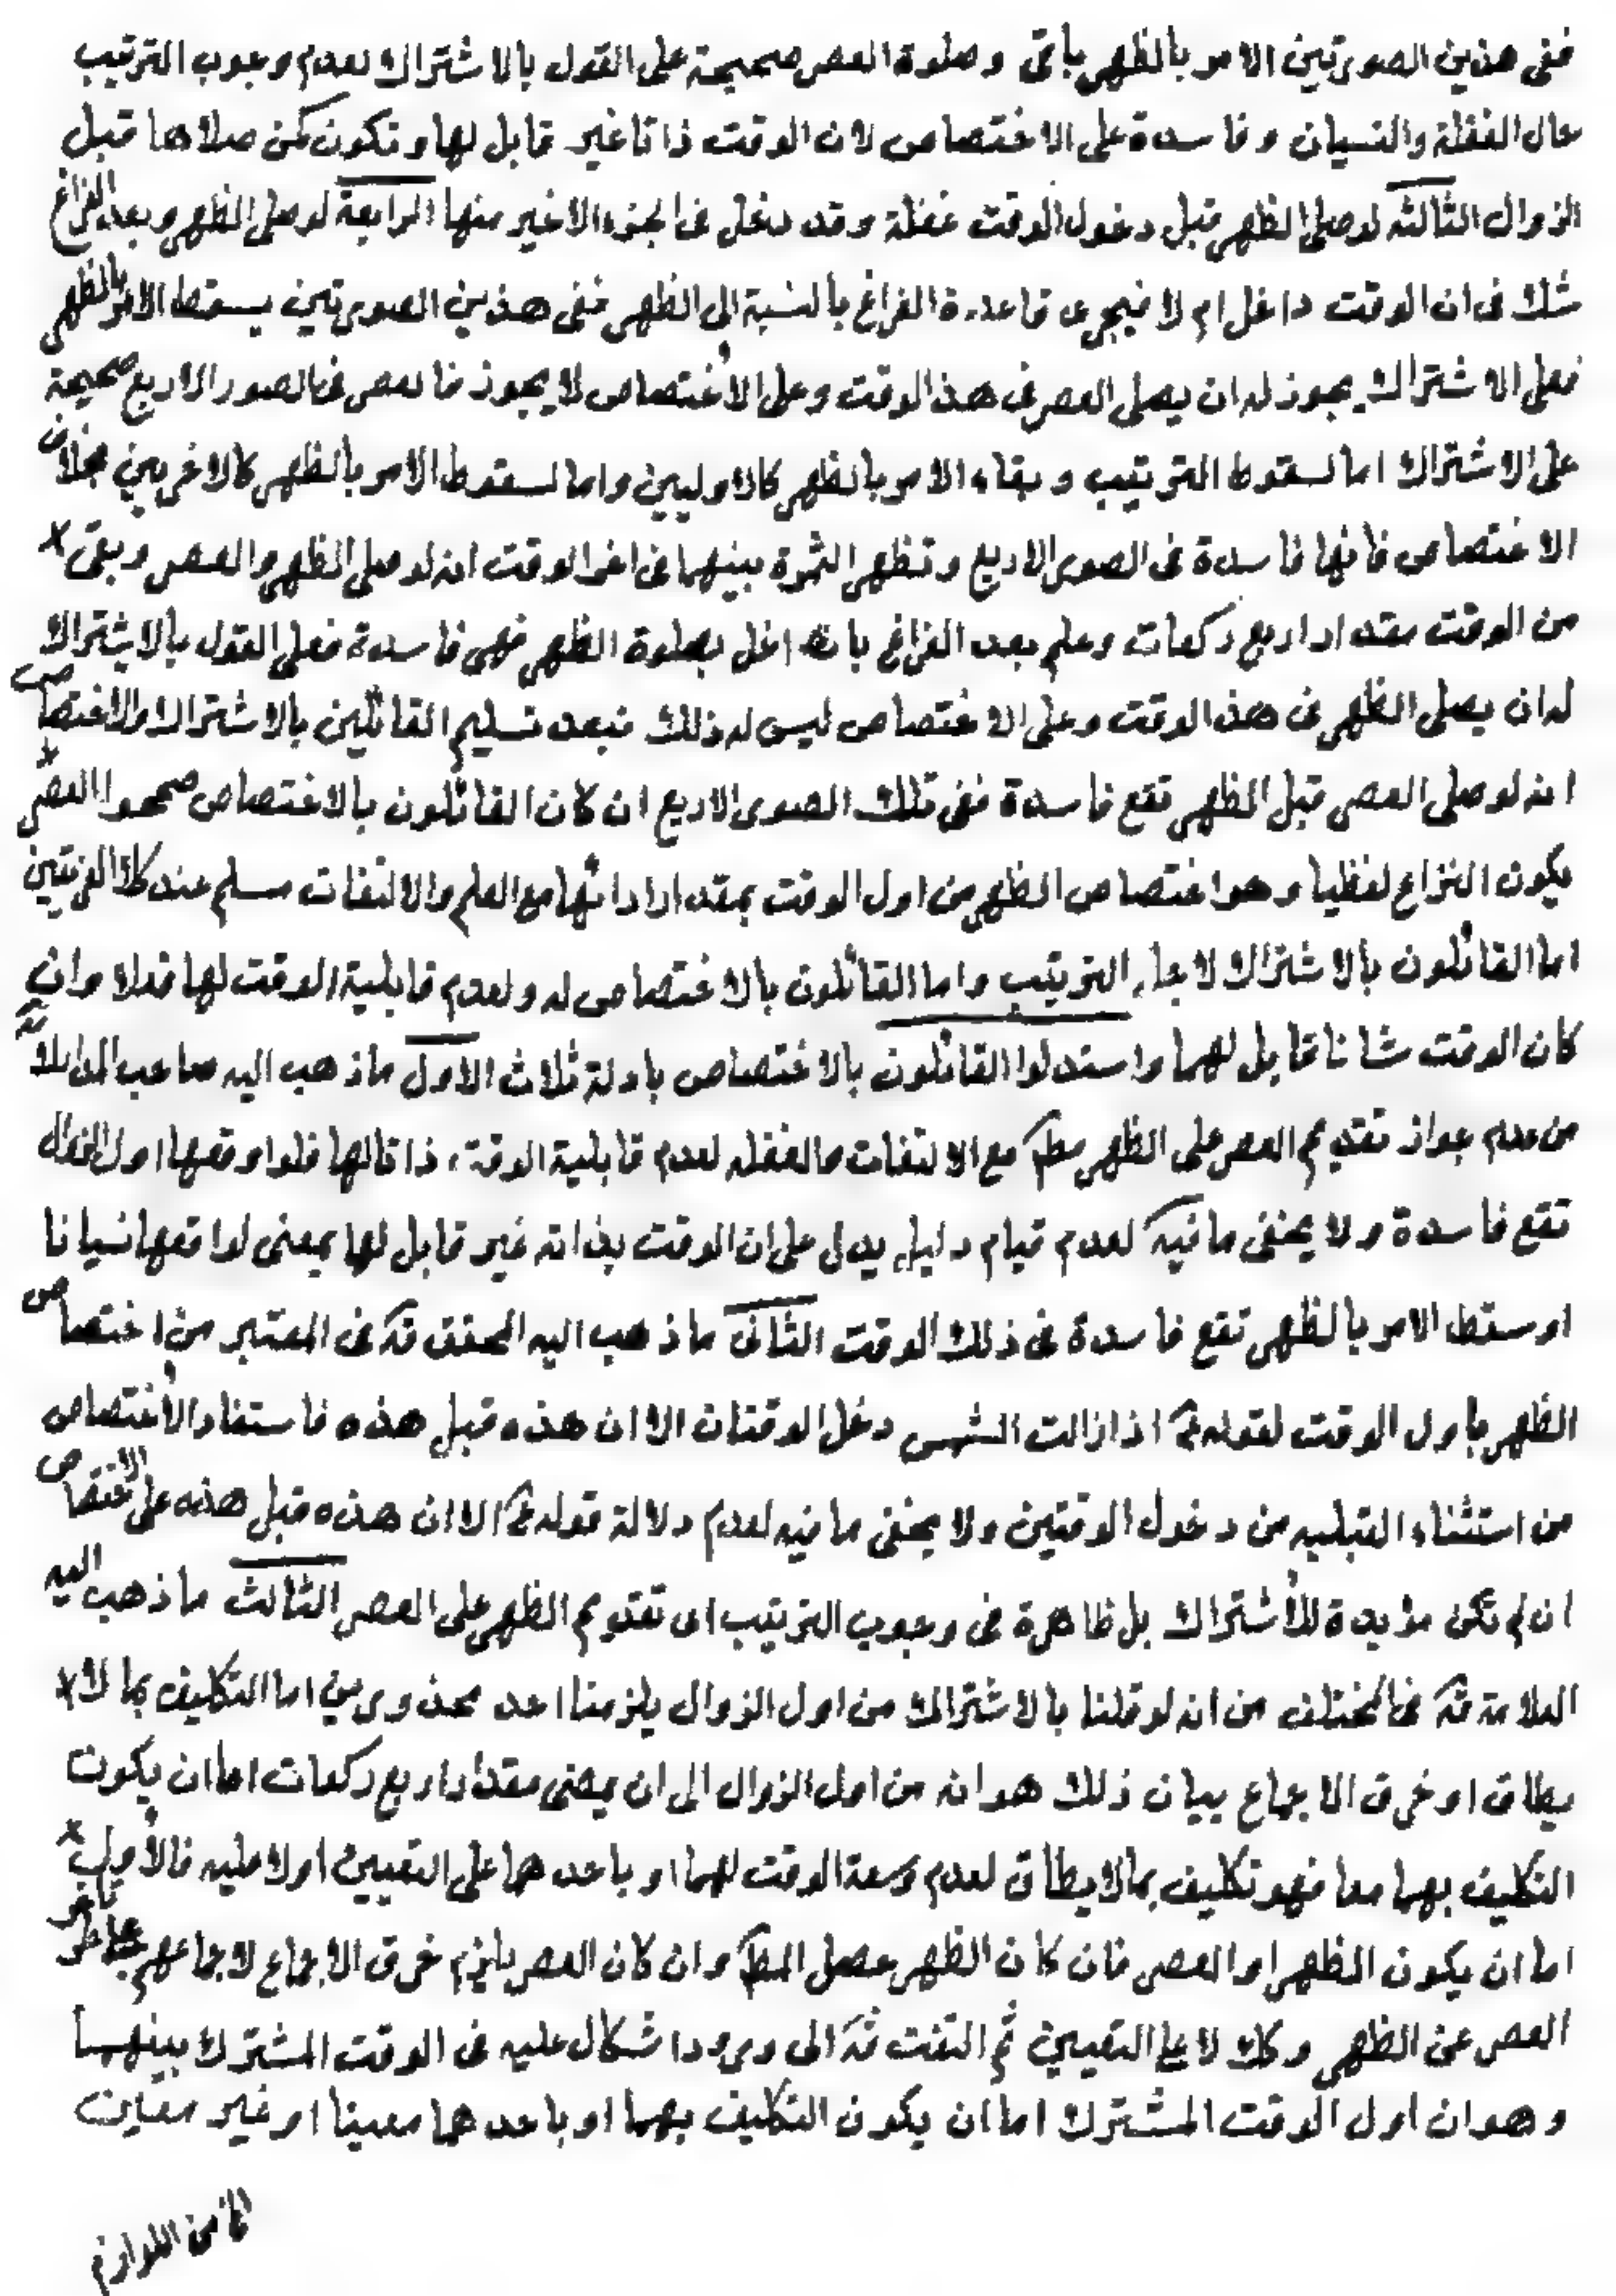 ففى هذين الصورتين الامر بالظهر باق وصلوة العصر صحيحة على القول بالاشتراك لعدم وجوب الترتيب
حال الغفلة والنسيان وفاسدة على الاختصاص لان الوقت ذاتا غير قابل لها وتكون كمن صلاها قبل
الزوال الثالثه لو صلى الظهر قبل دخول الوقت غفلة وقد دخل فى الجزء الاخير منها الرابعة لو صلى الظهر وبعد الفراغ
شك فى ان الوقت داخل ام لا فيجرى قاعدة الفراغ بالنسبة الى الظهر ففى هذين الصورتين يسقط الامر بالظهر
فعلى الاشتراك يجوز له ان يصلى العصر فى هذا الوقت وعلى الاختصاص لا يجوز فالعصر فى الصور الاربع صحيحة
على الاشتراك اما لسقوط الترتيب وبقاء الامر بالظهر كالاوليين واما لسقوط الامر بالظهر كالاخريين بخلاف
الاختصاص فانها فاسدة فى الصور الاربع وتظهر الثمرة بينهما فى اخر الوقت انه لو صلى الظهر والعصر وبقى
من الوقت مقدار اربع ركعات وعلم بعد الفراغ بانه اخل بصلوة الظهر فهى فاسدة فعلى القول بالاشتراك
له ان يصلى الظهر فى هذا الوقت وعلى الاختصاص ليس له ذلك فبعد تسليم القائلين بالاشتراك والاختصاص
انه لو صلى العصر قبل الظهر تقع فاسدة ففى تلك الصور الاربع ان كان القائلون بالاختصاص صححوا العصر
يكون النزاع لفظيا وهو اختصاص الظهر من اول الوقت بمقدار ادائها مع العلم والالتفات مسلم عند كلا الفريقين
اما القائلون بالاشتراك لاجل الترتيب واما القائلون بالاختصاص له ولعدم قابلية الوقت لها فعلا وان
كان الوقت شانا قابل لهما واستدلوا القائلون بالاختصاص بادلة ثلاث الاول ماذهب اليه صاحب المدارك قده
من عدم جواز تقديم العصر على الظهر مط مع الالتفات والغفله لعدم قابلية الوقت ذاتا لها فلو اوقعها اول الزوال
تقع فاسدة ولا يخفى ما فيه لعدم قيام دليل يدل على ان الوقت بذاته غير قابل لها بمعنى لو اوقعها نسيانا
او سقط الامر بالظهر تقع فاسدة فى ذلك الوقت الثانى ماذهب اليه المحقق قده فى المعتبر من اختصاص
الظهر باول الوقت لقوله ع اذا زالت الشمس دخل الوقتان الا ان هذه قبل هذه فاستفاد الاختصاص
من استثناء القبليه من دخول الوقتين ولا يخفى ما فيه لعدم دلالة قوله ع الا ان هذه قبل هذه على الاختصاص
ان لم تكن مؤيدة للاشتراك بل ظاهرة فى وجوب الترتيب اى تقديم الظهر على العصر الثالث ماذهب اليه
العلامة قده فى المختلف من انه لو قلنا بالاشتراك من اول الزوال يلزمنا احد محذورين اما التكليف بما لا
يطاق او خرق الاجماع بيان ذلك هو انه من اول الزوال الى ان يمضى مقدار اربع ركعات اما ان يكون
التكليف بهما معا فهو تكليف بما لا يطاق لعدم وسعة الوقت لهما او باحدهما على التعيين اولا عليه فالاول
اما ان يكون الظهر او العصر فان كان الظهر حصل المط وان كان العصر يلزم خرق الاجماع لاجماعهم على تاخر
العصر عن الظهر وكك لا على التعيين ثم التفت قده الى ورود اشكال عليه فى الوقت المشترك بينهما
وهو ان اول الوقت المشترك اما ان يكون التكليف بهما او باحدهما معينا او غير معين
من اللوازم